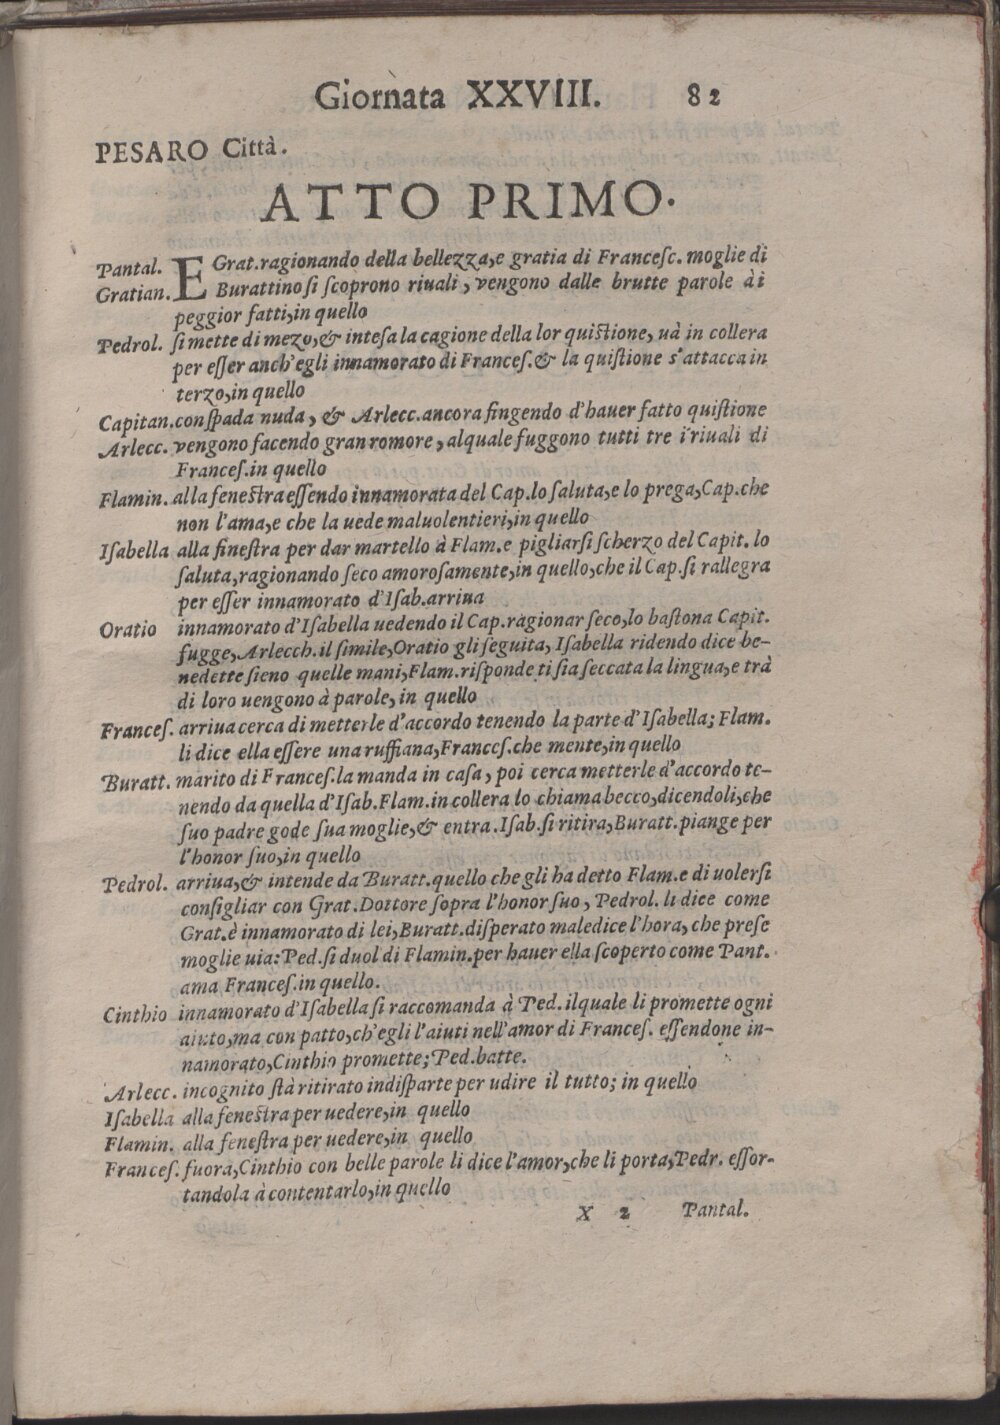 Giornata XXVIII. 82
PESARO Città.
ATTO PRIMO.
Pantal. E Grat.ragionando della bellezza,e gratia di Franceſc. moglie di
Gratian. Burattino ſi ſcoprono riuali, vengono dalle brutte parole à i
peggior fatti,in quello
Pedrol. ſi mette di mezo,& inteſa la cagione della lor quiſtione, uà in collera
per eſſer anch'egli innamorato di Franceſ.& la quiſtione s'attacca in
terzo,in quello
Capitan. con ſpada nuda, & Arlecc.ancora fingendo d'hauer fatto quiſtione
Arlecc. vengono facendo gran romore, al quale fuggono tutti tre i riuali di
Franceſ.in quello
Flamin. alla feneſtra eſſendo innamorata del Cap.lo ſaluta,e lo prega,Cap.che
non l'ama,e che la uede maluolentieri,in quello
Iſabella alla fineſtra per dar martello à Flam.e pigliarſi ſcherzo del Capit.lo
ſaluta,ragionando ſeco amoroſamente,in quello,che il Cap.ſi rallegra
per eſſer innamorato d'Iſab.arriua
Oratio innamorato d'Iſabella uedendo il Cap.ragionar ſeco,lo baſtona Capit.
fugge, Arlecch.il ſimile,Oratio gli ſeguita, Iſabella ridendo dice be-
nedette ſieno quelle mani,Flam.riſponde ti ſia ſeccata la lingua,e trà
di loro uengono à parole, in quello
Franceſ. arriua cerca di metterle d'accordo tenendo la parte d'Iſabella; Flam.
li dice ella eſſere una ruffiana,Franceſ.che mente,in quello
Buratt. marito di Franceſ.la manda in caſa, poi cerca metterle d'accordo te-
nendo da quella d'Iſab.Flam.in collera lo chiama becco,dicendoli,che
ſuo padre gode ſua moglie,& entra.Iſab.ſi ritira,Buratt.piange per
l'honor ſuo,in quello
Pedrol. arriua,& intende da Buratt.quello che gli ha detto Flam.e di uolerſi
conſigliar con Grat.Dottore ſopra l'honor ſuo, Pedrol. li dice come
Grat.è innamorato di lei,Buratt.diſperato maledice l'hora, che preſe
moglie uia:Ped.ſi duol di Flamin.per hauer ella ſcoperto come Pant.
ama Franceſ.in quello.
Cinthio innamorato d'Iſabella ſi raccomanda à Ped.ilquale li promette ogni
aiuto,ma con patto,ch'egli l'aiuti nell'amor di Franceſ. eſſendone in-
namorato,Cinthio promette; Ped.batte.
Arlecc. incognito ſtà ritirato indiſparte per udire il tutto; in quello
Iſabella alla feneſtra per uedere,in quello
Flamin. alla feneſtra per uedere,in quello
Franceſ. fuora,Cinthio con belle parole li dice l'amor,che li porta,Pedr. eſſor-
tandola à contentarlo,in quello
X 2 Pantal.